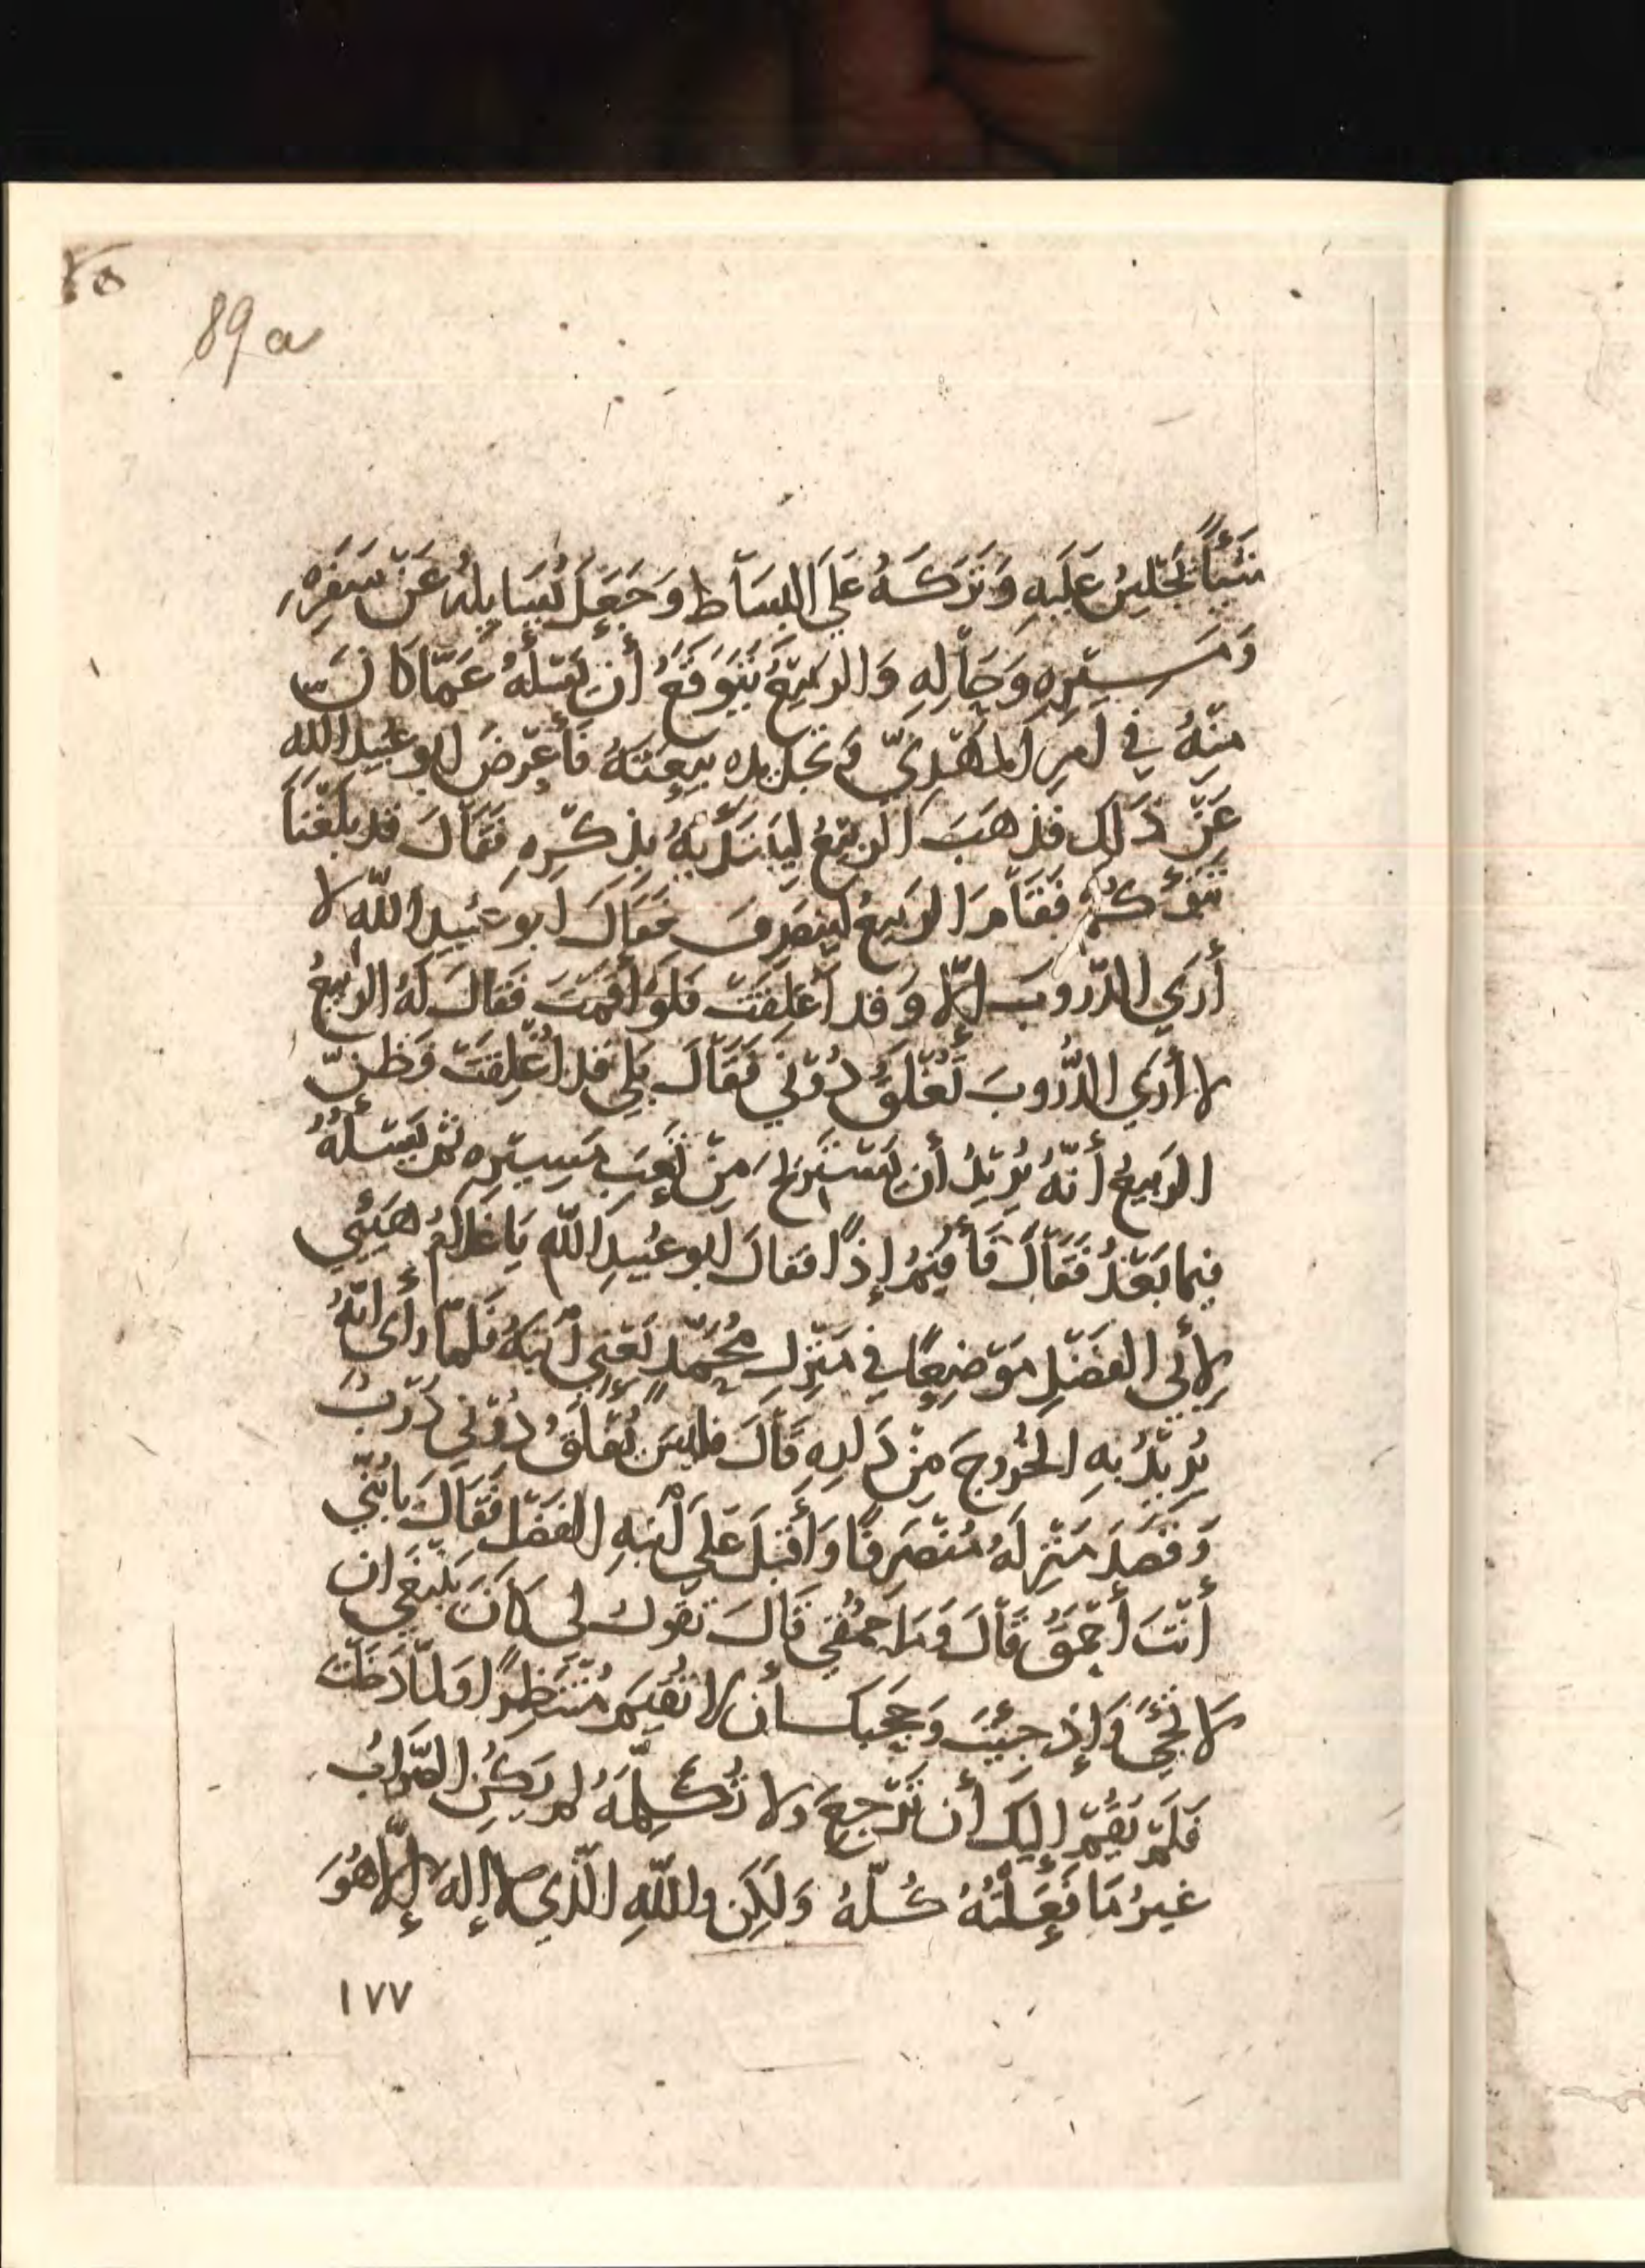 89a
شَيْئًا يَجْلِسُ عَلَيهِ وَتَرَكَهُ عَلَى البِسَاطِ وَجَعَلَ يُسَايِلُهُ عَنْ سَفَرِهِ
وَمَسِيْرِهِ وَحَالِهِ وَالرَبِيْعُ يَتَوَقَّعُ أَن يَسْئَلَهُ عَمَّا كَانَ
مِنْهُ فِي أَمرِ المَهْدِيِّ وَتجديده بَيعَتَهُ فَأَعْرَضَ ابو عُبَيدِ الله
عَنْ ذَلِك فذهَبَ الربيْعُ ليَبتَدِيَهُ بِذِكْرِهِ فَقَالَ قد بَلَغَنَا
نَبَؤُكُمْ فَقَامَ الرَبيعُ لينصَرِفَ فَقَالَ ابو عُبَيدِ اللّه لا
أَرَي الدّرُوبَ إلّا وَقد أُغلِقَتْ فَلَو أَقمتَ فَقَالَ لَهُ الرَبيعُ
لا أرَي الدُّرُوبَ تُغْلَقُ دُوْنِي فَقَالَ بَلي قَد أُغْلِقَتْ وَظَنَّ
الرَبيعُ أَنّهُ يُرِيْدُ أن يَسْتَرِيحَ مِنْ تَعَبِ مَسِيرِهِ ثم يَسْئَلُهُ
فيما بَعْدُ فَقَالَ فَأُقِيْمُ إذًا فقالَ ابو عُبَيدِ اللّه يَا غُلامُ هَيِّئي
لِأَبي الفَضْلِ مَوْضِعًا فِي مَنْزِلِ مُحَمَّدٍ يَعْنِي ابْنَهُ فَلَمّا رَأَى أنّهُ
يُرِيْدُ بِهِ الخُرُوجَ مِنْ دَارِهِ قَالَ فليسَ تُغْلَقُ دُوْنِي دَرْبٌ
وَقَصَدَ مَنْزِلَهُ مُنْصَرِفًا وَأَقبَلَ عَلي ابْنِهِ الفَضْلِ فَقَالَ يا بُنَيّ
أَنْتَ أَحْمَقُ قَالَ وَمَا حُمْقِي قَالَ تقول لي كَانَ يَنْبَغي ان
لا تَجِيَ وَإِذ جِيْتَ وَحَجَبكَ أن لا تُقيمَ مُنْتَظِرًا وَلمّا دَخَلْتَ
فَلَمْ يَقُمْ إليكَ أن تَرْجِعَ ولا تُكَلِّمَهُ لم يَكُنِ الصَّوَابُ
غيرُ مَا فَعَلْتُهُ كُلّهُ وَلَكِن واللّهِ الّذِي لا إلهَ إلّا هُوَ
١٧٧